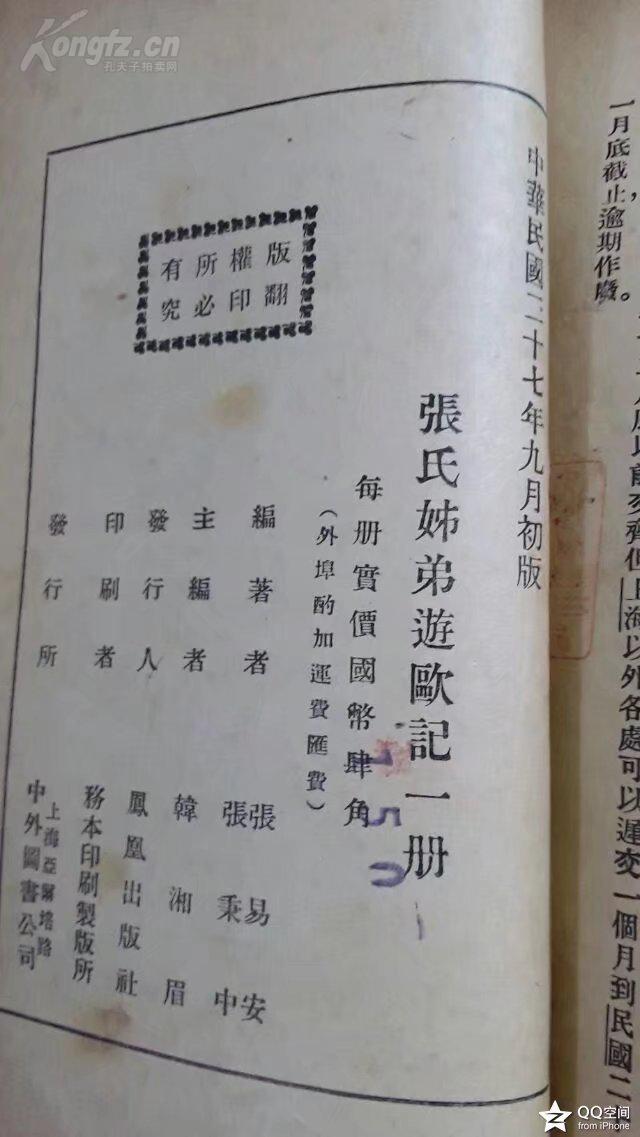 以前交齊但上海以外各處可以遲交一個月到民國二
一月底截止，逾期作廢。
中華民國二十七年九月初版
張氏姊弟遊歐記一册
每册實價國幣肆角
150
（外埠酌加運費匯費）
版權所有
翻印必究
編著者 張易安
張秉中
主編者 韓湘眉
發行人 鳳凰出版社
印刷者 務本印刷製版所
發行所 上海亞爾培路
中外圖書公司
Kongfz.cn
孔夫子拍卖网
QQ空间
from iPhone